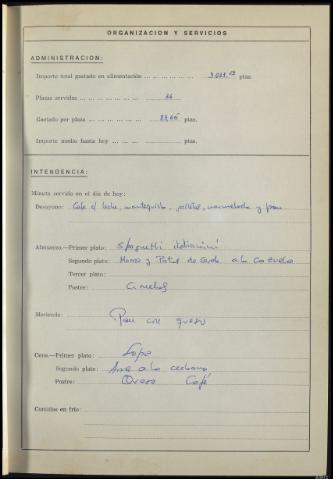 ORGANIZACION Y SERVICIOS
ADMINISTRACION:
Importe total gastado en alimentación ... ... ... ... ... ptas.
Plazas servidas ... ... ... ... ... ... 36
Gastado por plaza ... ... ... ... ... ptas.
Importe medio hasta hoy ... ... ... ptas.
INTENDENCIA:
Minuta servida en el día de hoy:
Desayuno: Café c/ leche, mantequilla, mermelada y pan
Almuerzo.—Primer plato: Spaguetti
Segundo plato: Manos y Patas de Cerdo a la Cazuela
Tercer plato:
Postre:
Merienda: Pan con queso
Cena.—Primer plato: Sopa
Segundo plato: a la cubana
Postre: Queso Café
Comidas en frío: